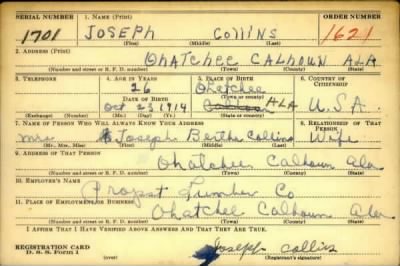 SERIAL NUMBER 1. NAME (Print) ORDER NUMBER
1701 JOSEPH COLLINS 1621
(First) (Middle) (Last)
2. ADDRESS (Print)
Ohatchee CALHOUN ALA
(Number and street or R. F. D. number) (Town) (County) (State)
3. TELEPHONE 4. AGE IN YEARS 5. PLACE OF BIRTH 6. COUNTRY OF CITIZENSHIP
26 Ohatchee
DATE OF BIRTH ALA U.S.A.
Oct 23 1914
(Exchange) (Number) (Mo.) (Day) (Yr.) (Town) (County) (State or country)
7. NAME OF PERSON WHO WILL ALWAYS KNOW YOUR ADDRESS 8. RELATIONSHIP OF THAT PERSON
Mrs Joseph Bertha Collins Wife
(Mr., Mrs., Miss) (First) (Middle) (Last)
9. ADDRESS OF THAT PERSON
Ohatchee Calhoun Ala
(Number and street or R. F. D. number) (Town) (County) (State)
10. EMPLOYER'S NAME
Propst Lumber Co
11. PLACE OF EMPLOYMENT OR BUSINESS
Ohatchee Calhoun Ala
(Number and street or R. F. D. number) (Town) (County) (State)
I AFFIRM THAT I HAVE VERIFIED ABOVE ANSWERS AND THAT THEY ARE TRUE.
REGISTRATION CARD
D. S. S. Form 1
Joseph Collins
(Registrant's signature)